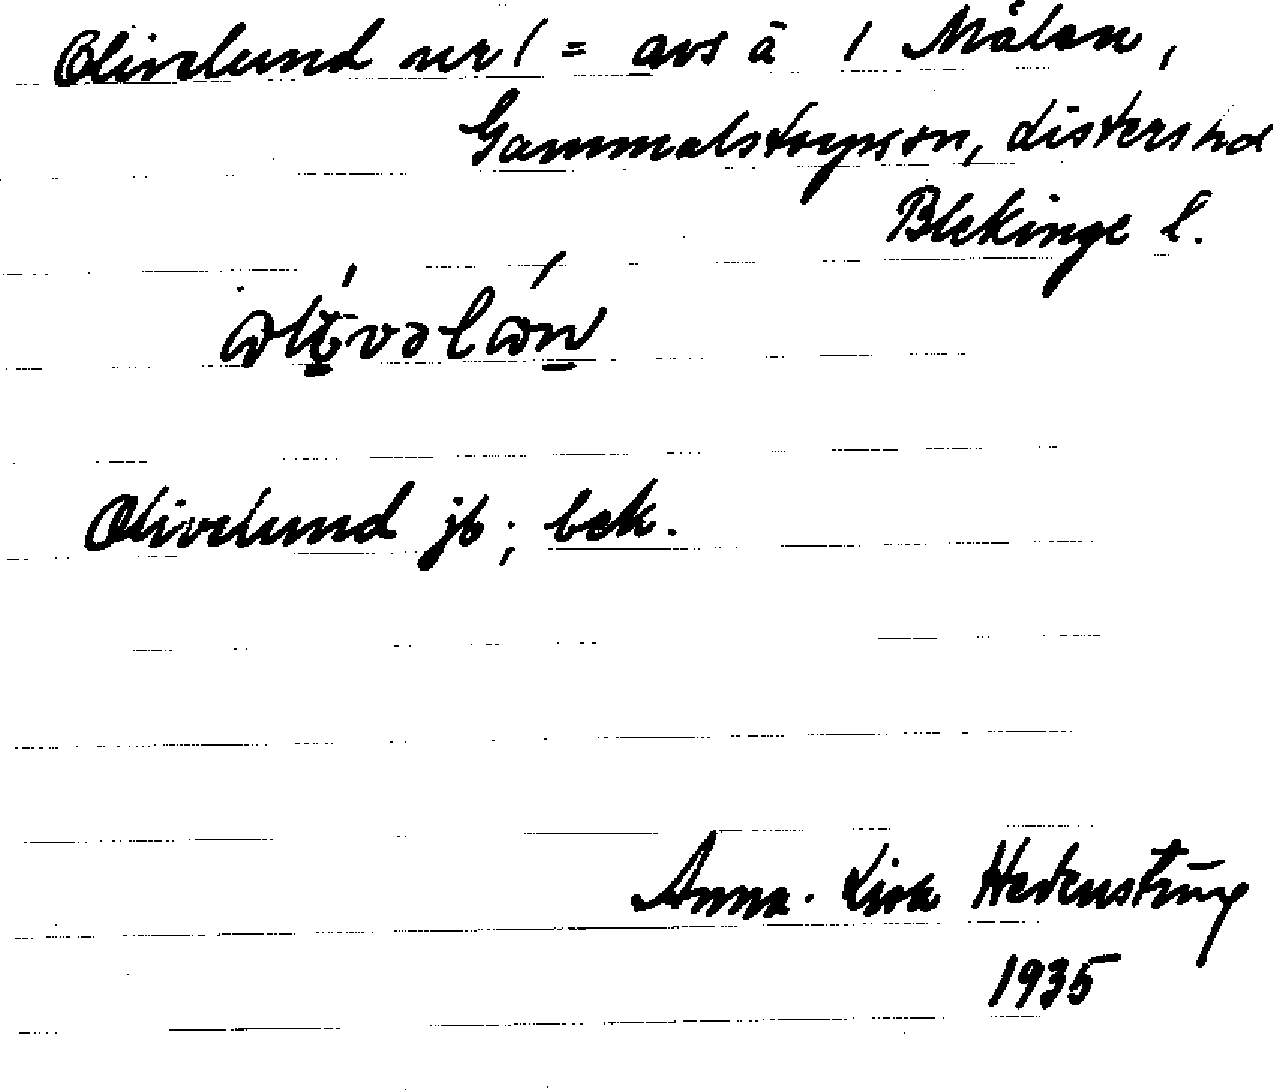 Olivelund nr 1 = avs å 1 Målen,
Gammalstorpssn, Listers hd
Blekinge l.
Olivelund jb; bek.
Anna-Lisa Hedenstring
1935